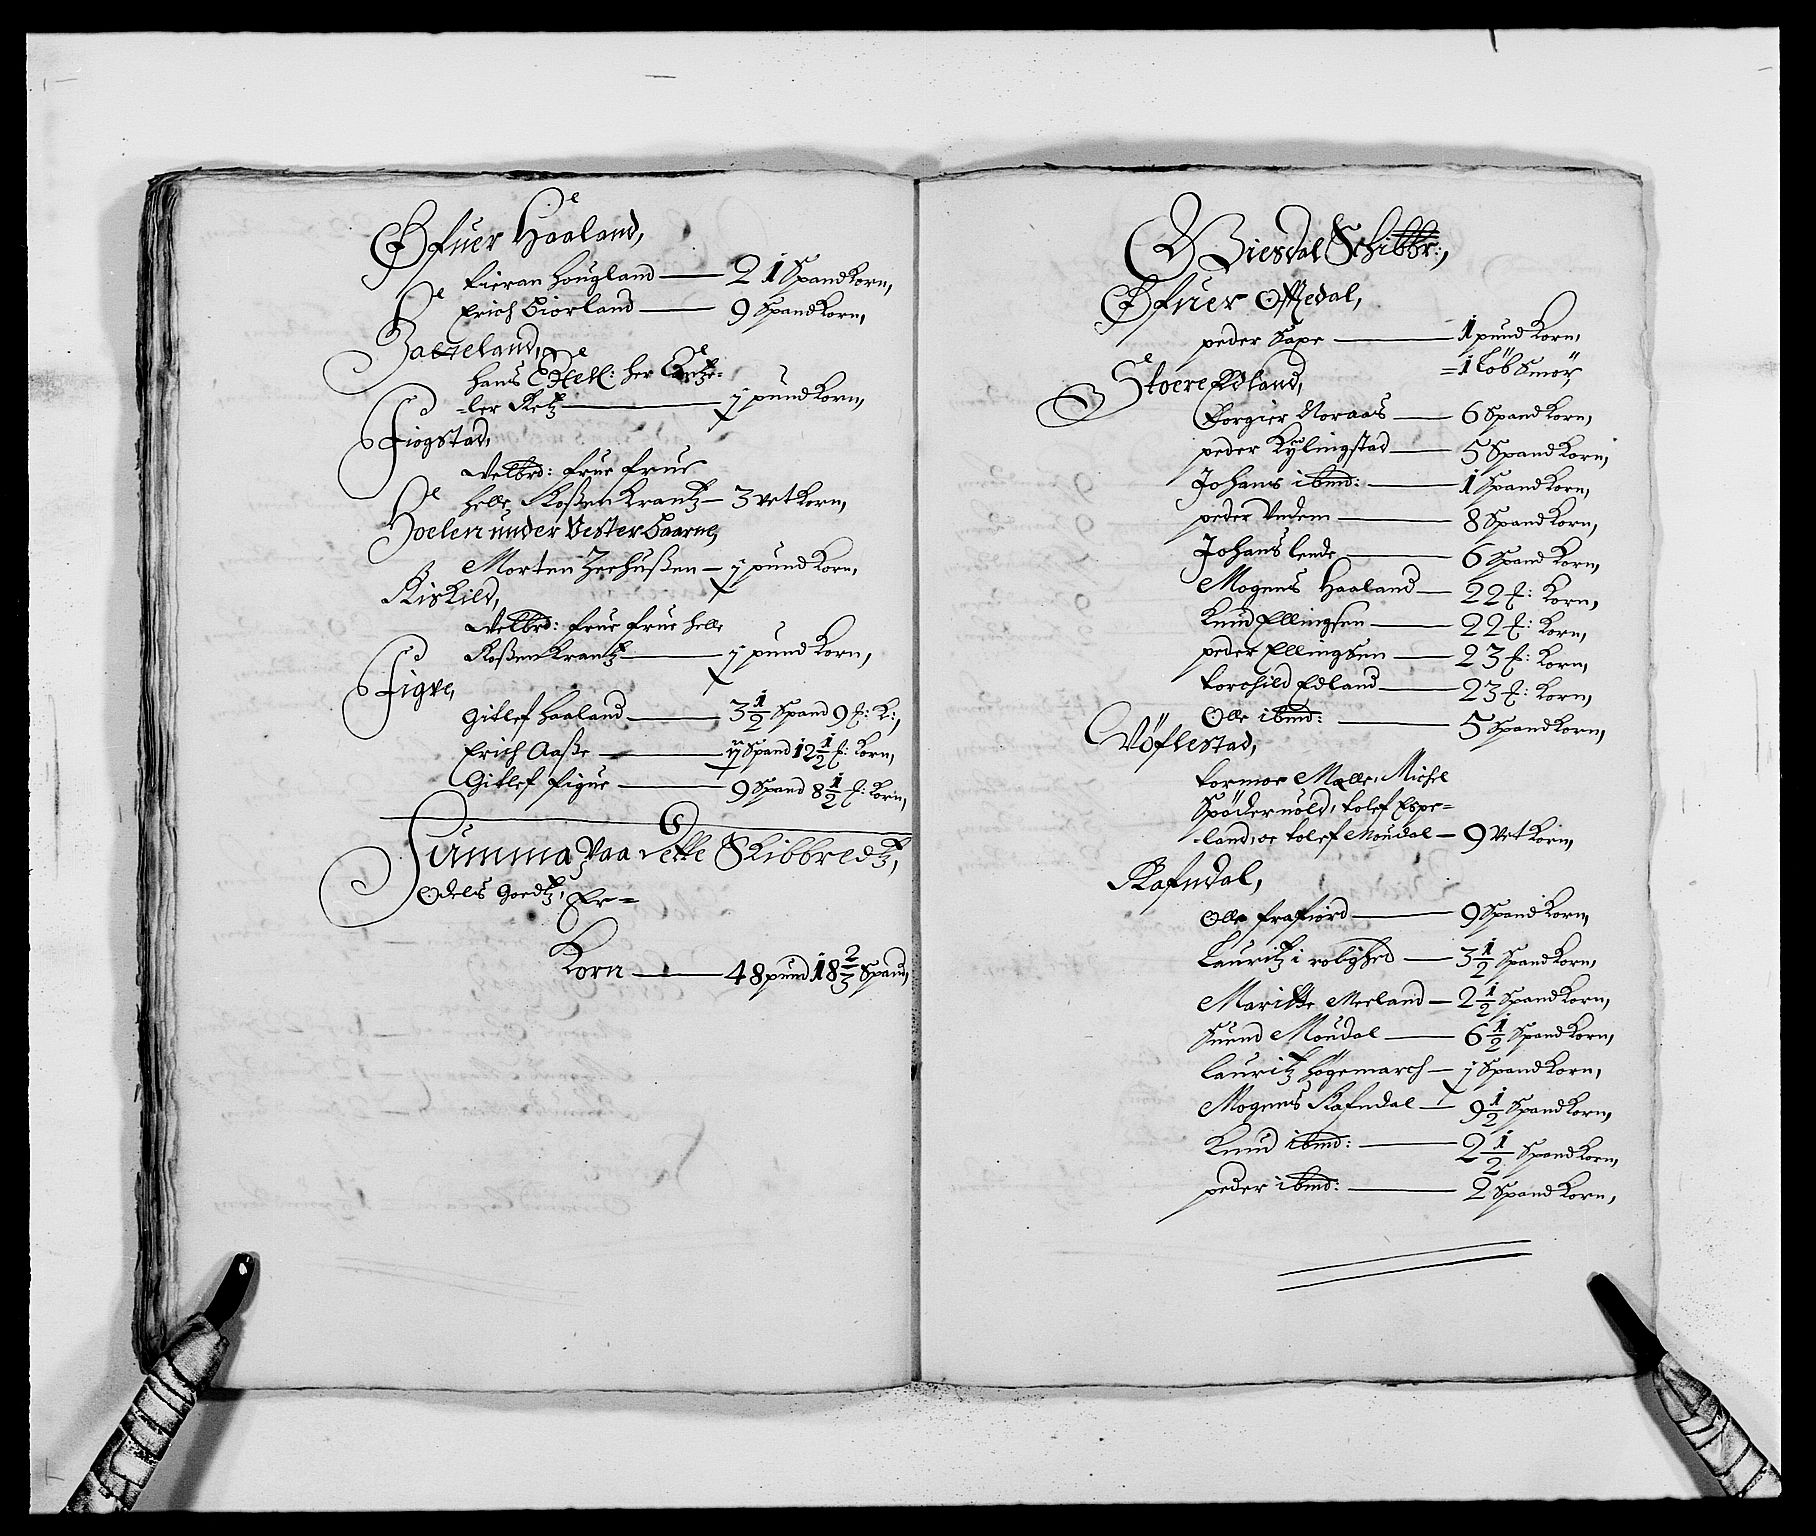 Øfuer Haaland,
Fieran Hougland — 21 Spand Korn,
Erich Giorland — 9 Spand Korn,
hans Excell: her Cantze=
=ler Retz — ij pund Korn,
Fiogstad,
Velbrd: frue frue
Helle Roßen Krantz — 3 vet Korn,
Hoelen under Vester Baarne,
Morten Zeehußen — ij pund Korn,
Riskild,
Velbrd: frue frue Helle
Roßen Krantz — ij pund Korn,
Figve,
Gitlef Haaland — 3 1/2 Spand 9 f: K:,
Erich Aaße — ij Spand 12 1/2 f: Korn,
Gitlef figue — 9 Spand 8 1/2 f: Korn,
Summa Paa dette Skibbredtz,
Odels Goedtz, Er=
Korn — 48 pund 18 2/3 Spand,
Giesdal Schibbr:,
Øfuer Offedal,
peder Sape — 1 pund Korn,
=1 Löb Smör,
Stoere Edland,
Borgier Noraas — 6 Spand Korn,
peder Kÿlingstad — 5 Spand Korn,
Johans ibmd: — 1 Spand Korn,
peder Undem — 8 Spand Korn,
Johans lende — 6 Spand Korn,
Mogens Haaland — 22 f: Korn,
Knud Ellingsen — 22 f: Korn,
peder Ellingsen — 23 f: Korn,
Torchild Edland — 23 f: Korn,
Olle ibmd: — 5 Spand Korn,
Vöflestad,
Tormoe Mælle, Michel
Spödervold, Tolef Espe=
=land, oc Tolef Moudal — 9 Vet Korn,
Rafndal,
Olle frafiord — 9 Spand Korn,
Lauritz i — 3 1/2 Spand Korn,
Maritte Meeland — 2 1/2 Spand Korn,
Suend Moudal — 6 1/2 Spand Korn,
Lauritz Høgemarch — ij Spand Korn,
Mogens Rafndal — 9 1/2 Spand Korn,
Knud ibmd: — 2 1/2 Spand Korn,
peder ibmd: — 2 Spand Korn,